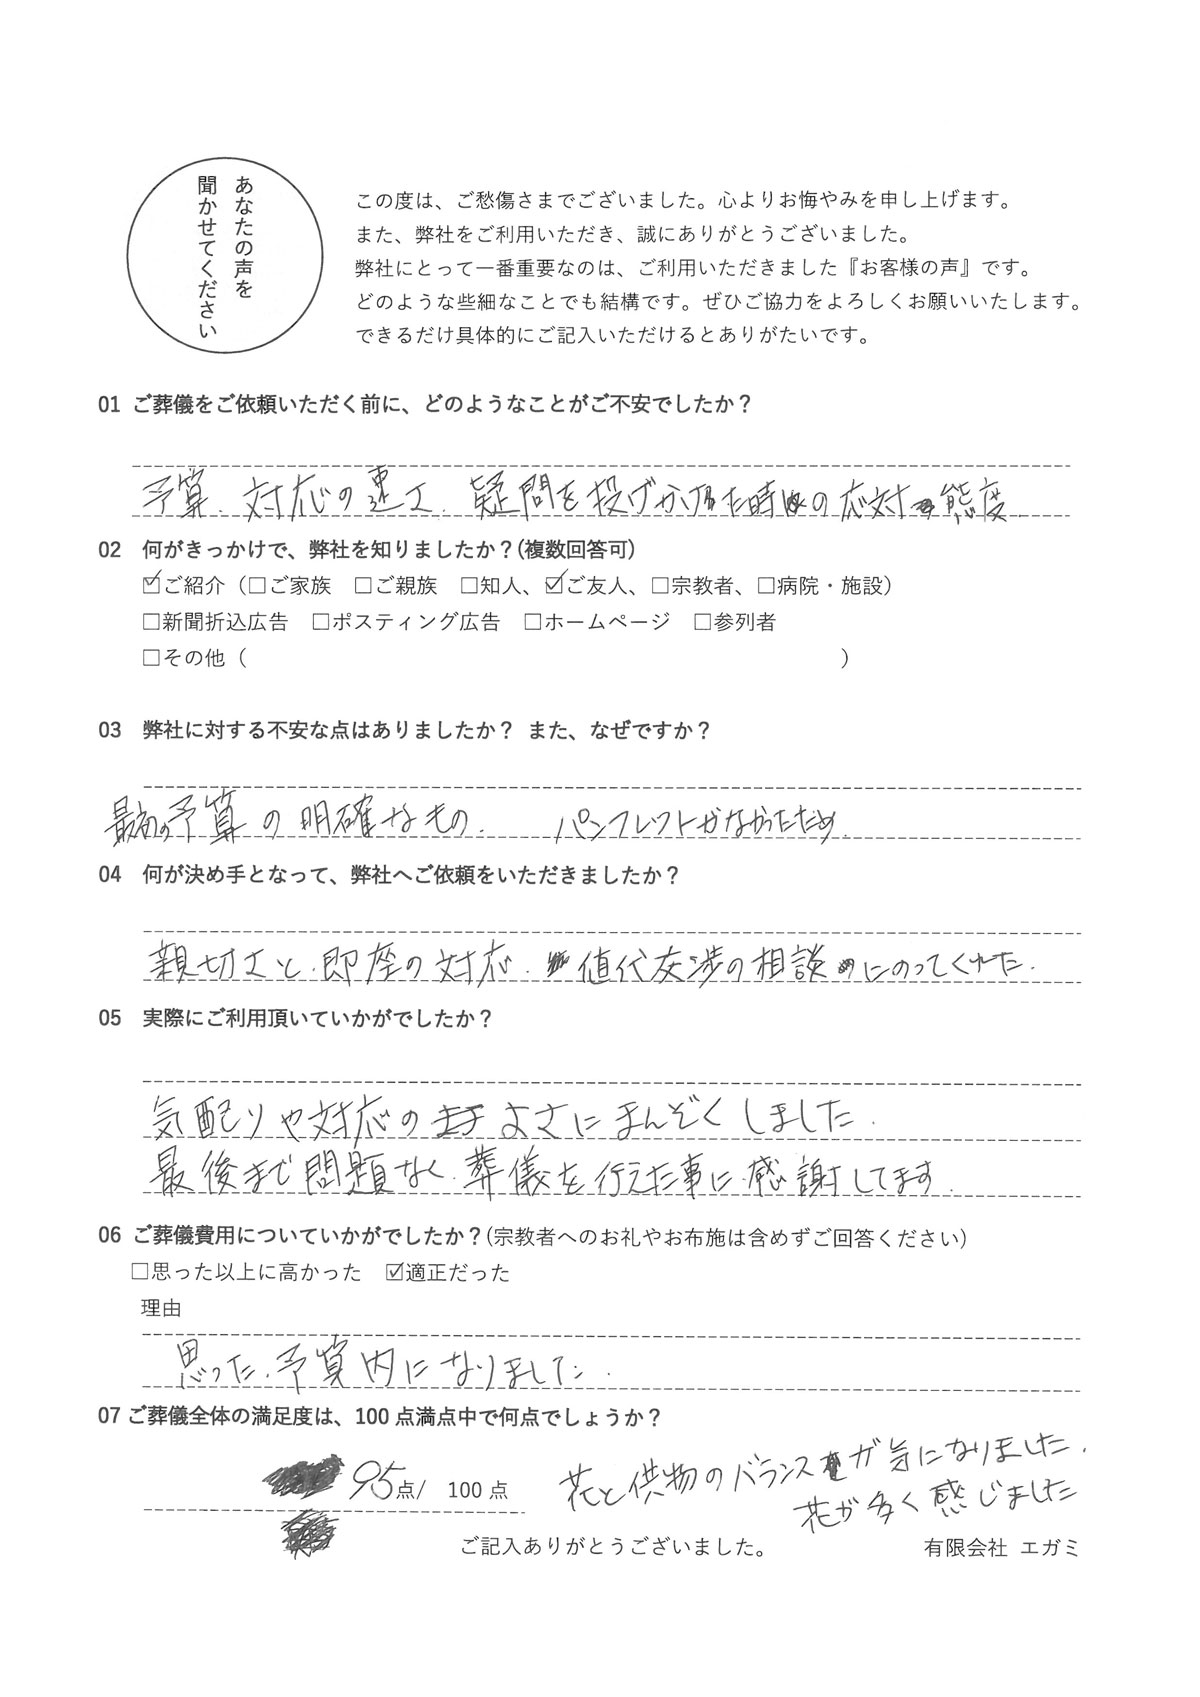 あなたの声を
聞かせてください
この度は、ご愁傷さまでございました。心よりお悔やみを申し上げます。
また、弊社をご利用いただき、誠にありがとうございました。
弊社にとって一番重要なのは、ご利用いただきました『お客様の声』です。
どのような些細なことでも結構です。ぜひご協力をよろしくお願いいたします。
できるだけ具体的にご記入いただけるとありがたいです。
01 ご葬儀をご依頼いただく前に、どのようなことがご不安でしたか？
予算、対応の速さ、疑問を投げかけた時の応対態度
02 何がきっかけで、弊社を知りましたか？(複数回答可)
☑ご紹介（□ご家族 □ご親族 □知人、☑ご友人、□宗教者、□病院・施設）
□新聞折込広告 □ポスティング広告 □ホームページ □参列者
□その他（ ）
03 弊社に対する不安な点はありましたか？ また、なぜですか？
最初の予算の明確なもの. パンフレットがなかったため.
04 何が決め手となって、弊社へご依頼をいただきましたか？
親切さと.即座の対応. 値代交渉の相談にのってくれた.
05 実際にご利用頂いていかがでしたか？
気配りや対応のよさにまんぞくしました.
最後まで問題なく.葬儀を行えた事に.感謝してます.
06 ご葬儀費用についていかがでしたか？(宗教者へのお礼やお布施は含めずご回答ください)
□思った以上に高かった ☑適正だった
理由
思った.予算内になりました.
07 ご葬儀全体の満足度は、100 点満点中で何点でしょうか？
95点/ 100 点
花と供物のバランスが気になりました.
花が多く感じました
ご記入ありがとうございました。
有限会社 エガミ